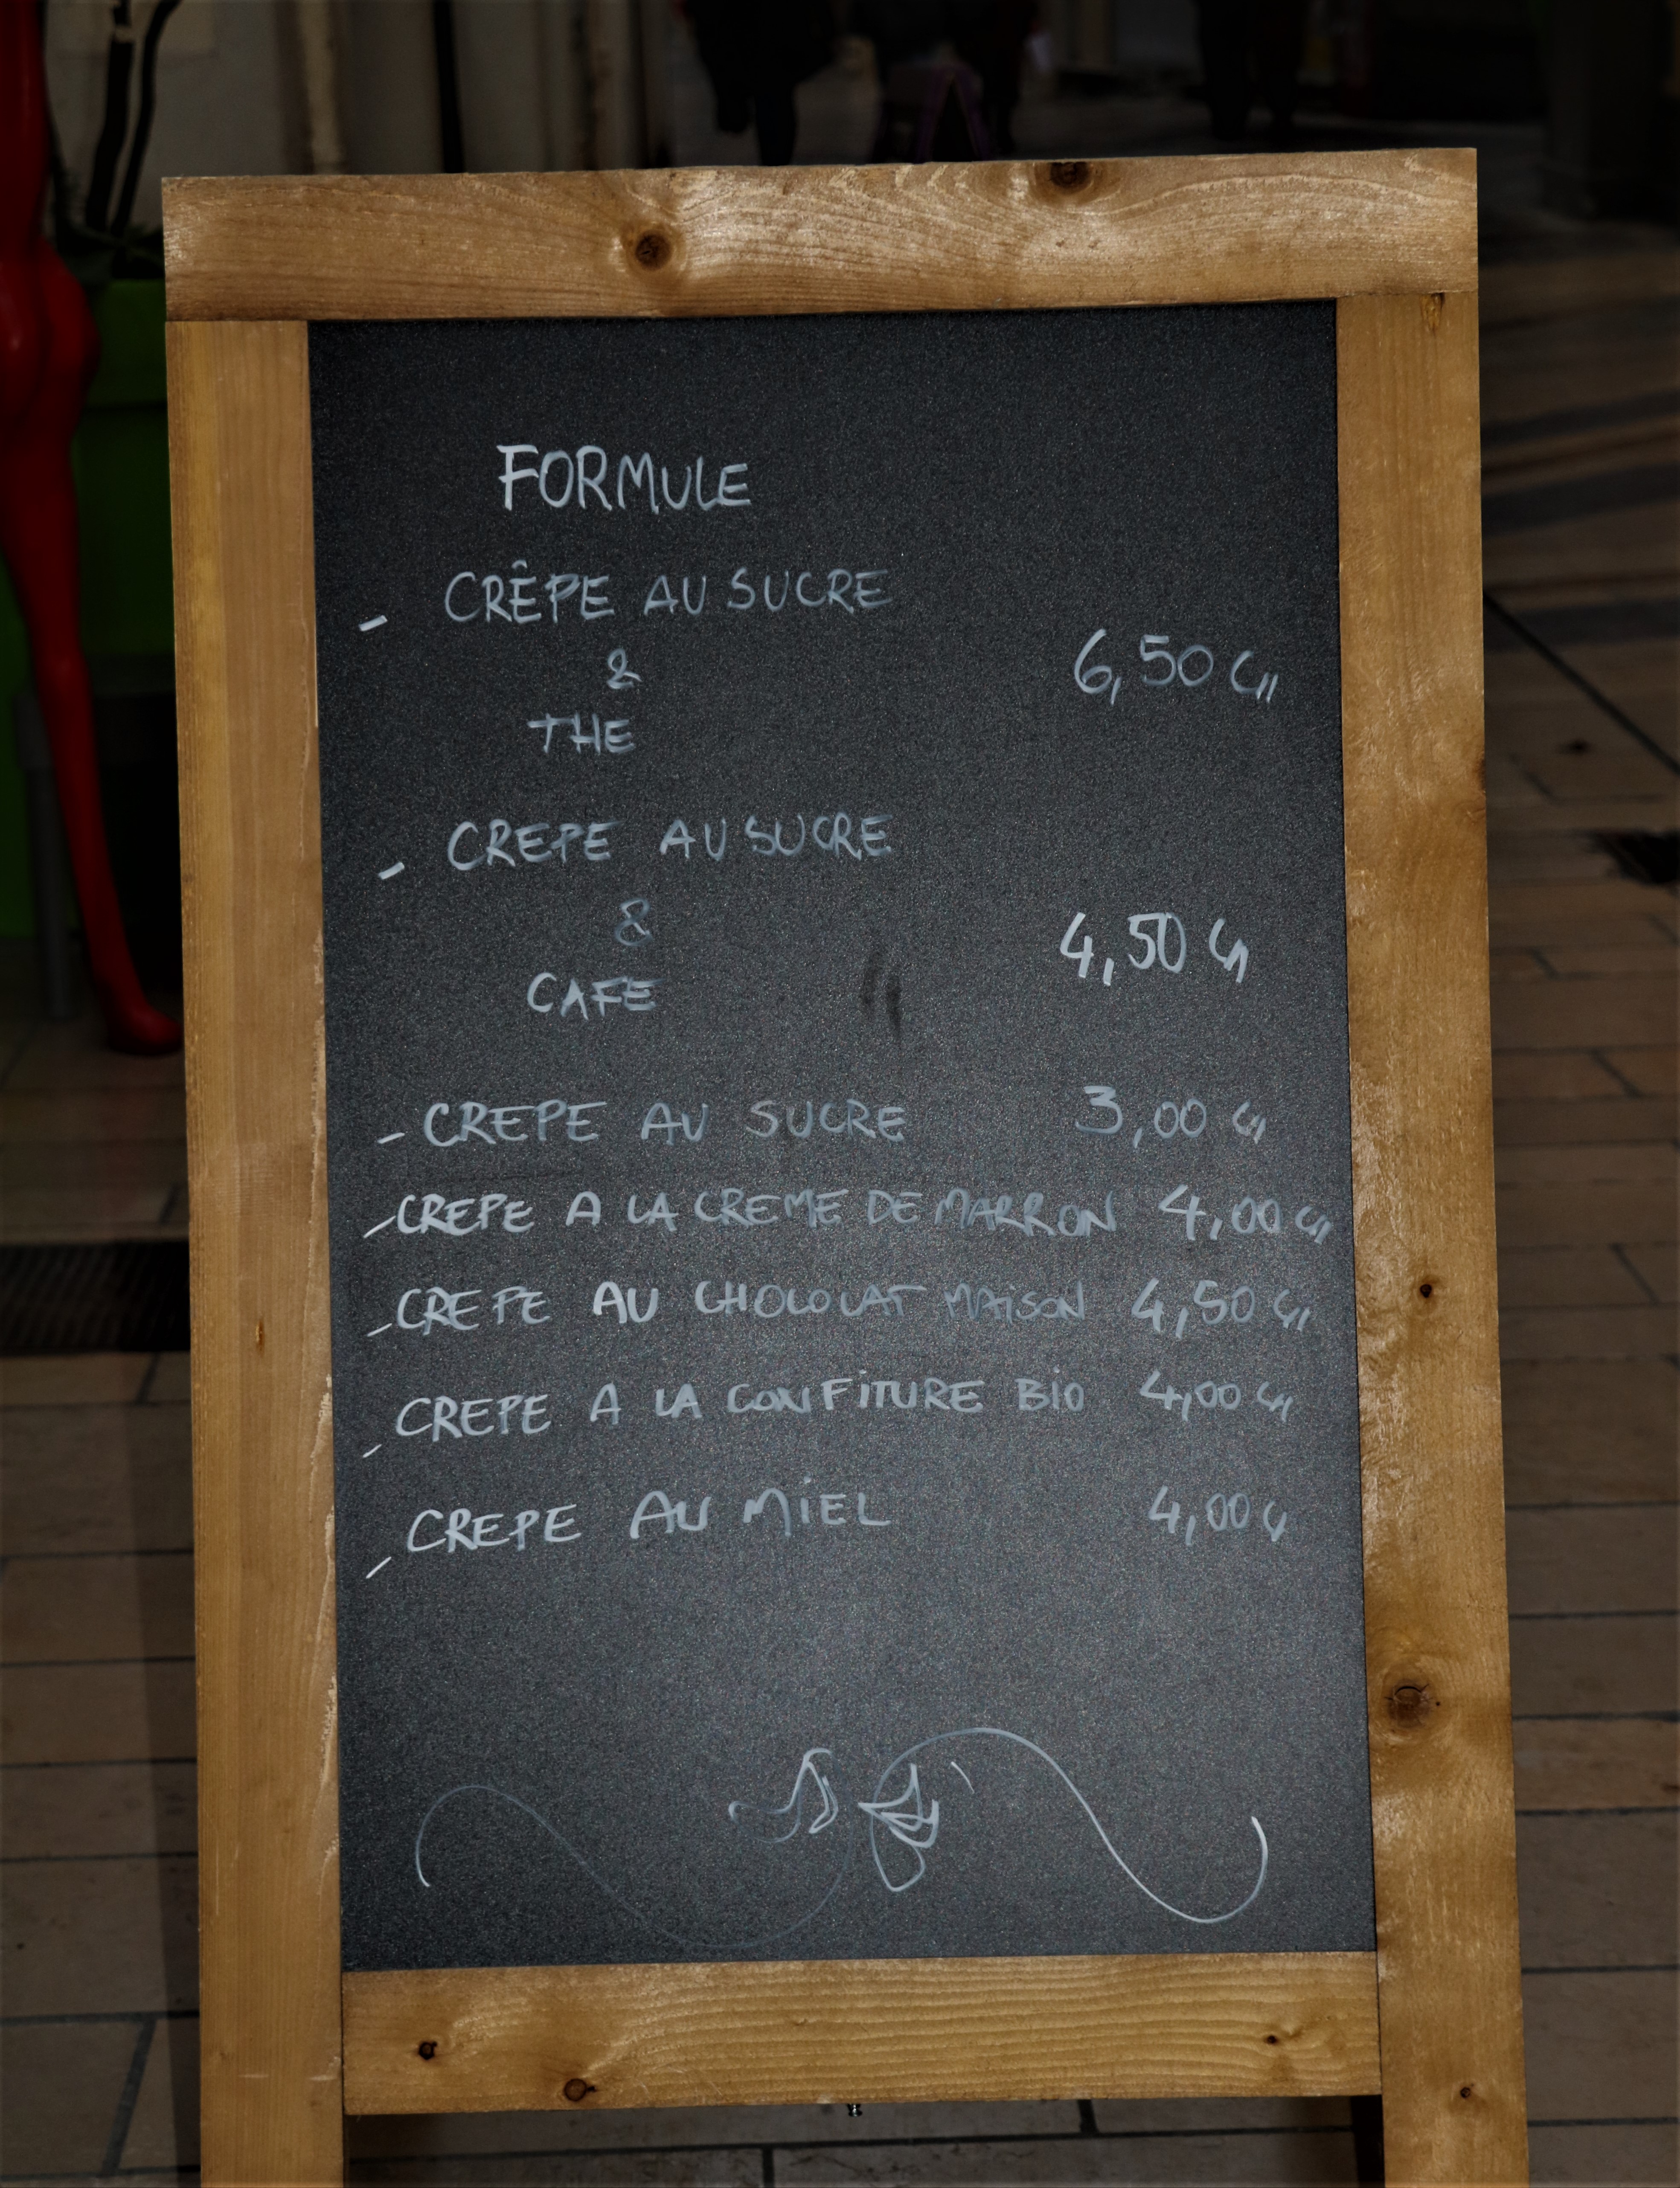 FORMULE
- CRÊPE AU SUCRE
&
THE
6,50 €
- CREPE AU SUCRE
&
CAFE
4,50 €
- CREPE AU SUCRE 3,00 €
- CREPE A LA CREME DE MARRON 4,00 €
- CREPE AU CHOCOLAT MAISON 4,50 €
- CREPE A LA CONFITURE BIO 4,00 €
- CREPE AU MIEL 4,00 €